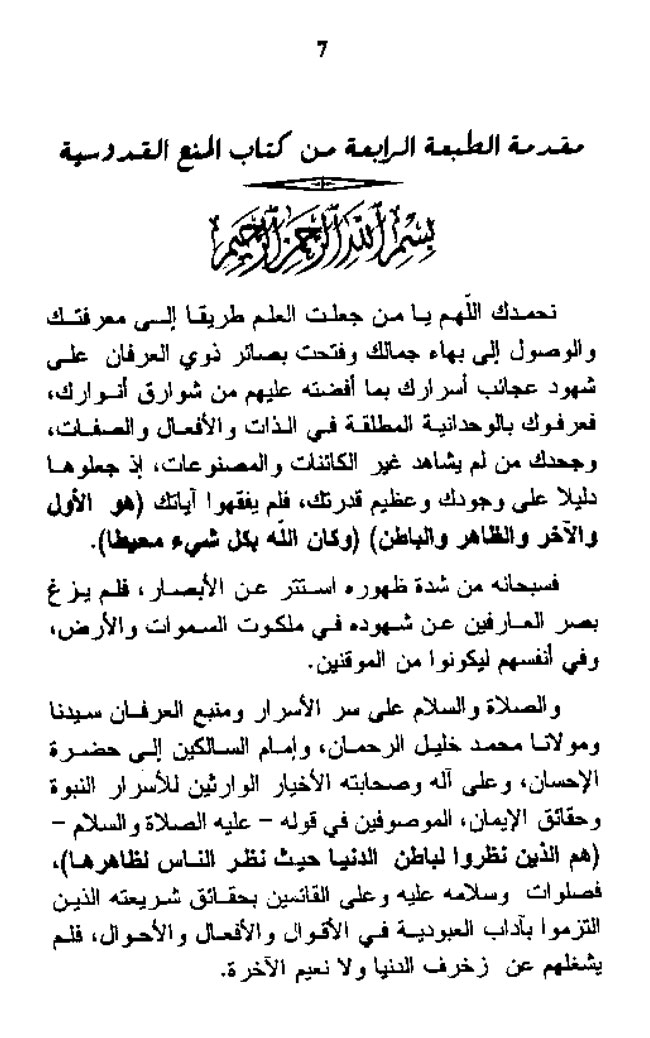 7
مقدمة الطبعة الرابعة من كتاب المنح القدوسية
بسم الله الرحمن الرحيم
نحمدك اللّهم يا من جعلت العلم طريقا إلى معرفتك
والوصول إلى بهاء جمالك وفتحت بصائر ذوي العرفان على
شهود عجائب أسرارك بما أفضته عليهم من شوارق أنوارك،
فعرفوك بالوحدانية المطلقة في الذات والأفعال والصفات،
وجحدك من لم يشاهد غير الكائنات والمصنوعات، إذ جعلوها
دليلا على وجودك وعظيم قدرتك، فلم يفقهوا آياتك (هو الأول
والآخر والظاهر والباطن) (وكان الله بكل شيء محيطا).
فسبحانه من شدة ظهوره استتر عن الأبصار، فلم يزغ
بصر العارفين عن شهوده في ملكوت السموات والأرض،
وفي أنفسهم ليكونوا من الموقنين.
والصلاة والسلام على سر الأسرار ومنبع العرفان سيدنا
ومولانا محمد خليل الرحمان، وإمام السالكين إلى حضرة
الإحسان، وعلى آله وصحابته الأخيار الوارثين للأسرار النبوة
وحقائق الإيمان، الموصوفين في قوله – عليه الصلاة والسلام –
(هم الذين نظروا لباطن الدنيا حيث نظر الناس لظاهرها)،
فصلوات وسلامه عليه وعلى القائمين بحقائق شريعته الذين
التزموا بآداب العبودية في الأقوال والأفعال والأحوال، فلم
يشغلهم عن زخرف الدنيا ولا نعيم الآخرة.